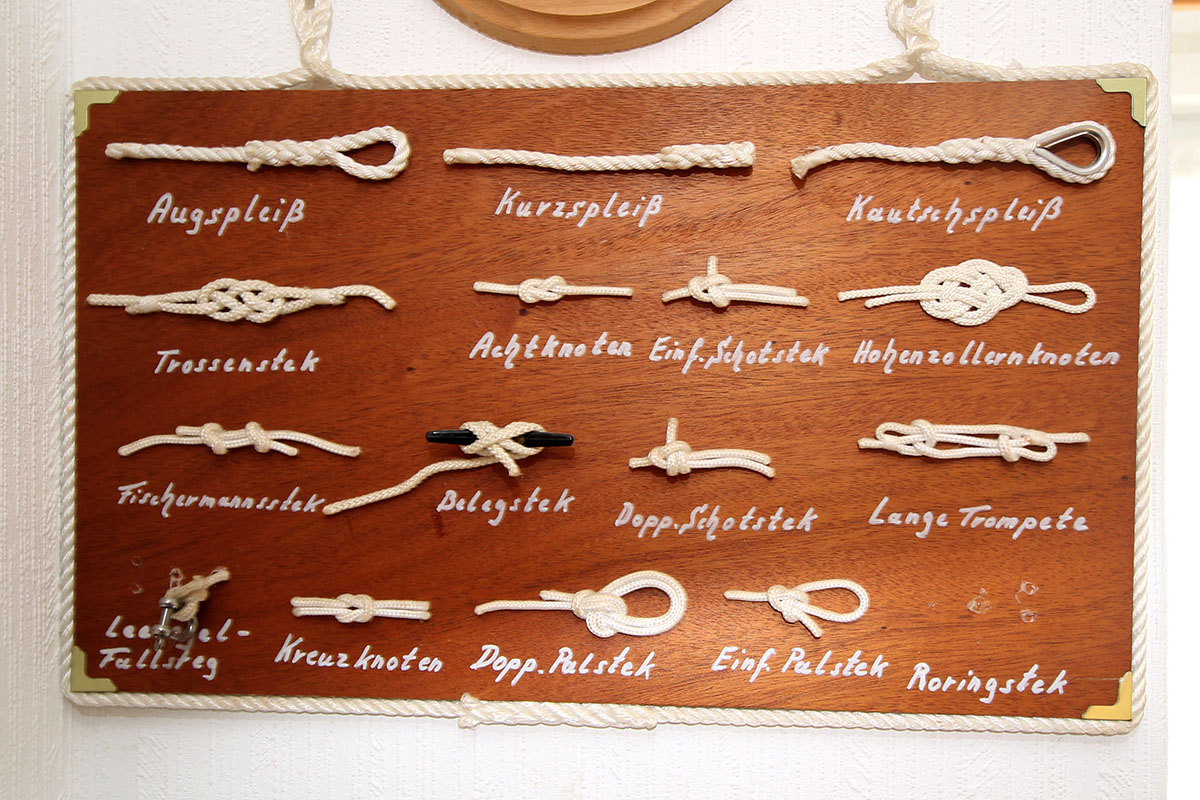 Augspleiß
Kurzspleiß
Kautschspleiß
Trossenstek
Achtknoten
Einf. Schotstek
Hohenzollernknoten
Fischermannsstek
Belegstek
Dopp. Schotstek
Lange Trompete
Fallsteg
Kreuzknoten
Dopp. Palstek
Einf. Palstek
Roringstek